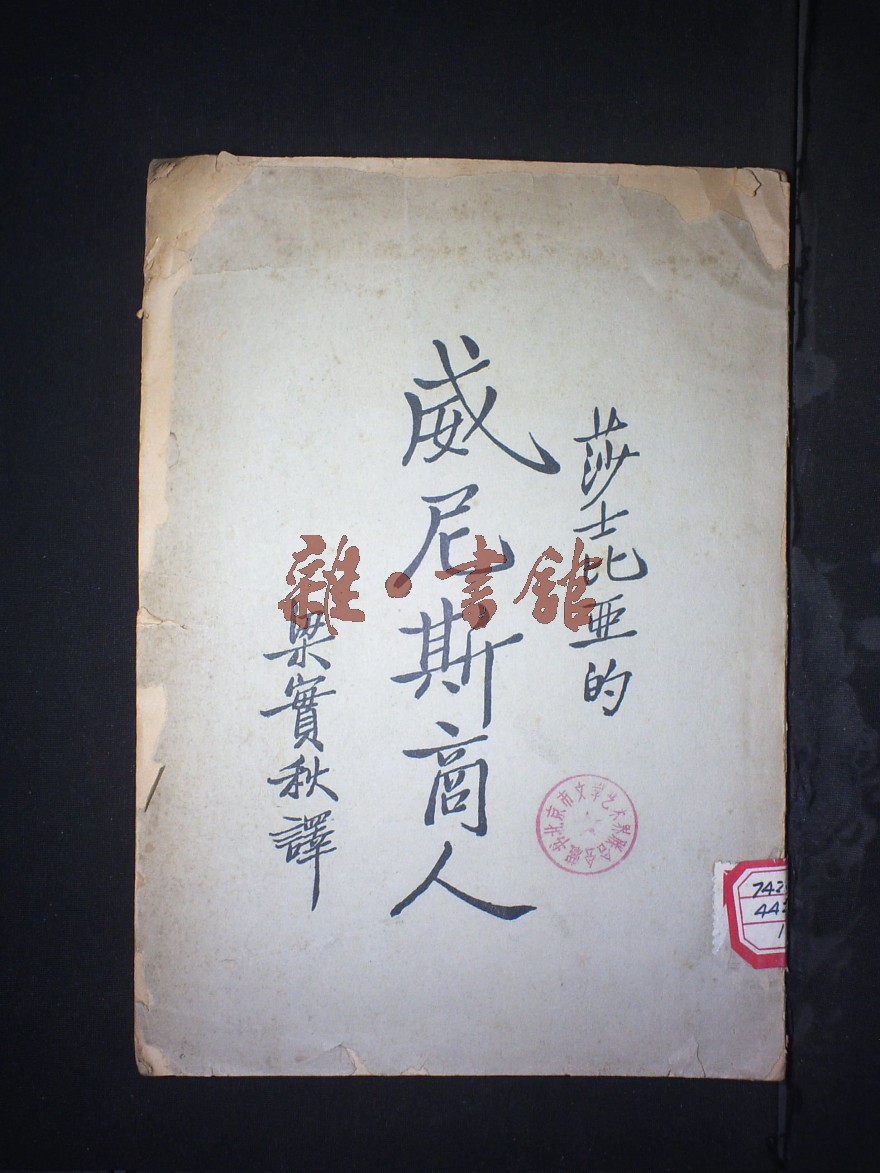 莎士比亚的
威尼斯商人
梁實秋譯
雜·書館
北京市文学艺术界联合会
742
44
1